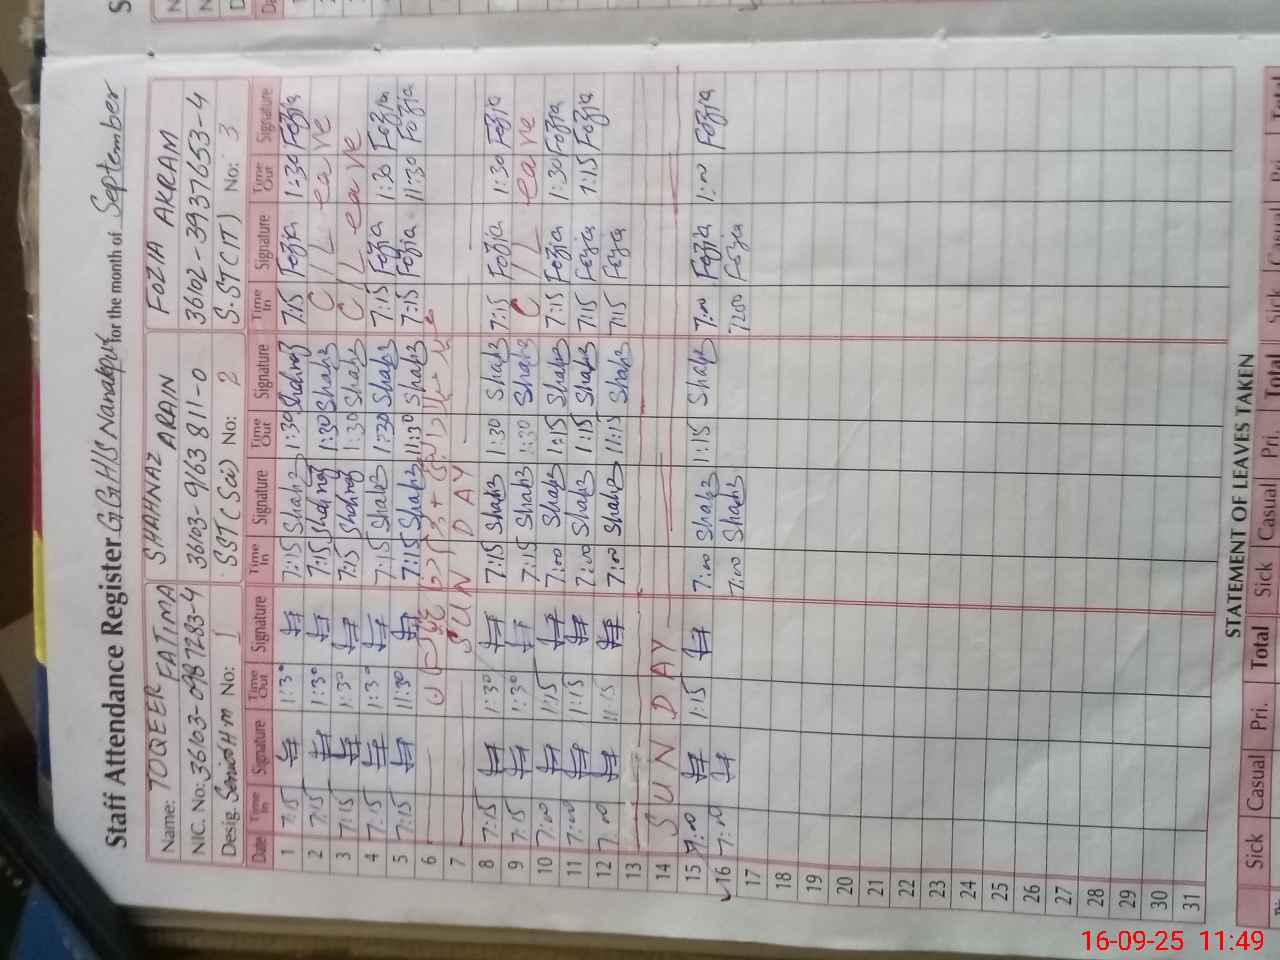 Staff Attendance Register GGHS Nanakpur for the month of September
Name: TOQEER FATIMA SHAHNAZ ARAIN FOZIA AKRAM
NIC. No: 36103-0987283-4 36103-963811-0 36102-3937653-4
Desig. Senior H.M No: 1 SST (Sci) No: 2 S.ST (IT) No: 3
Date Time In Signature Time Out Signature Time In Signature Time Out Signature Time In Signature Time Out Signature
1 7:15 1:30 7:15 Shahnaz 1:30 Shahnaz 7:15 Fozia 1:30 Fozia
2 7:15 1:30 7:15 Shahnaz 1:30 Shahnaz C/Leave
3 7:15 1:30 7:15 Shahnaz 1:30 Shahnaz C/Leave
4 7:15 1:30 7:15 Shahnaz 1:30 Shahnaz 7:15 Fozia 1:30 Fozia
5 7:15 11:30 7:15 Shahnaz 11:30 Shahnaz 7:15 Fozia 11:30 Fozia
6
7 SUNDAY
8 7:15 1:30 7:15 Shahnaz 1:30 Shahnaz 7:15 Fozia 1:30 Fozia
9 7:15 1:30 7:15 Shahnaz 1:30 Shahnaz C/Leave
10 7:00 1:15 7:00 Shahnaz 1:15 Shahnaz 7:15 Fozia 1:30 Fozia
11 7:00 1:15 7:00 Shahnaz 1:15 Shahnaz 7:15 Fozia 1:15 Fozia
12 7:00 11:15 7:00 Shahnaz 11:15 Shahnaz 7:15 Fozia
13
14 SUNDAY
15 7:00 1:15 7:00 Shahnaz 1:15 Shahnaz 7:00 Fozia 1:00 Fozia
16 7:00 7:00 Shahnaz 7:00 Fozia
17
18
19
20
21
22
23
24
25
26
27
28
29
30
31
STATEMENT OF LEAVES TAKEN
Sick Casual Pri. Total Sick Casual Pri. Total Sick Casual Pri. Total
16-09-25 11:49